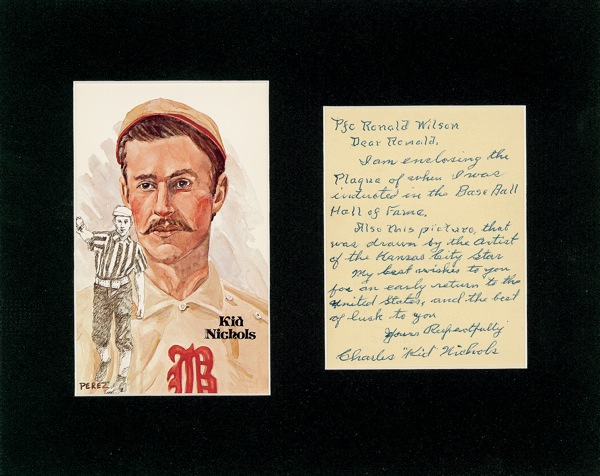 Kid
Nichols
B
PEREZ
Pfc Ronald Wilson
Dear Ronald,
I am enclosing the
Plaque of when I was
inducted in the Base Ball
Hall of Fame.
Also this picture, that
was drawn by the Artist
of the Kansas City Star
My best wishes to you
for an early return to the
United States, and the best
of luck to you
Yours Respectfully
Charles "Kid" Nichols